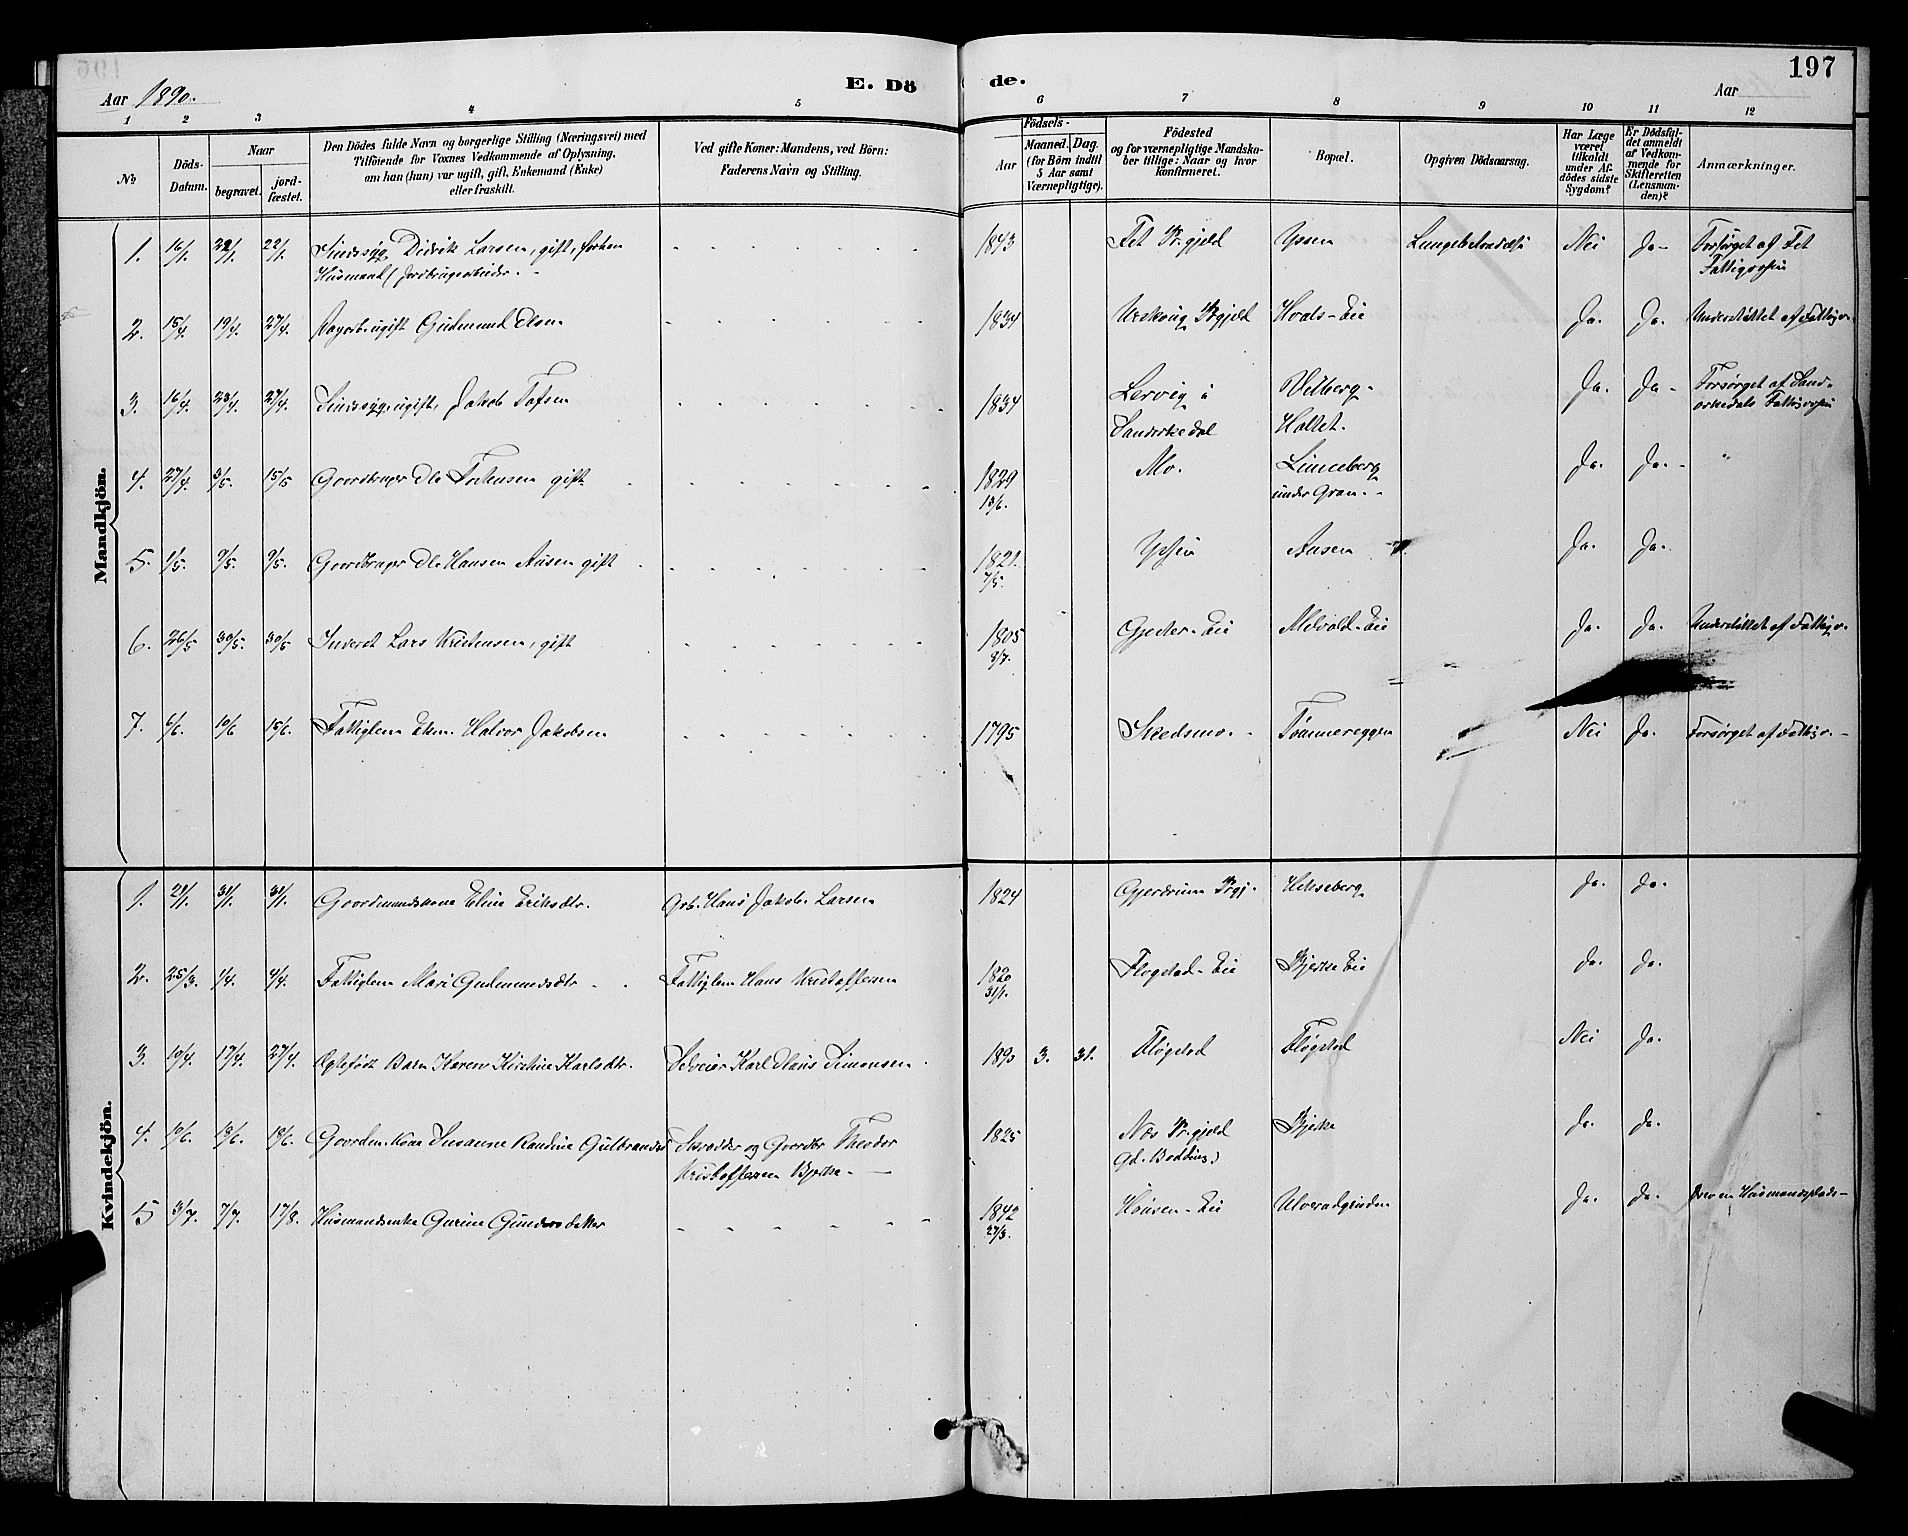 197
E. Dö de.
Aar 1890.
Aar
1 2 3 4 5 6 7 8 9 10 11 12
No
Döds-Datum.
Naar
begravet.
jord-fæstet.
Den Dödes fulde Navn og borgerlige Stilling (Næringsvei) med
Tilföiende for Voxnes Vedkommende af Oplysning,
om han (hun) var ugift, gift, Enkemand (Enke)
eller fraskilt.
Ved gifte Koner: Mandens, ved Börn:
Faderens Navn og Stilling.
Födsels-
Aar
Maaned. Dag.
(for Börn indtil
5 Aar samt
Værnepligtige).
Födested
og for værnepligtige Mandska-
ber tillige: Naar og hvor
konfirmeret.
Bopæl.
Opgiven Dödsaarsag.
Har Læge
været
tilkaldt
under Af-
dödes sidste
Sygdom?
Er Dödsfal-
det anmeldt
af Vedkom-
mende for
Skifteretten
(Lensman-
den)?
Anmærkninger.
Mandkjön.
1. 16/1. 22/1. 22/1. Sindssyg Didrik Larsen, gift, forhen 1843 Fet Prgjeld Lungebetændelse Nei Ja- Forsørget af Fet
Husmand
2. 15/4. 19/4. 27/4. ugift Gudmund Olsen 1834 Urskoug Prgjeld Eie Ja. Ja. Understøttet af Fattigv.
3. 16/4. 23/4. 27/4. Sindssyg, ugift, Jakob 1834 Lervig i Ja. Ja- Forsørget af
Hallet.
4. 27/4. 3/5. 15/5 Gaardbruger Ole gift 1829 Mo. Ja. Ja. "
13/6. under Gran.
5. 1/5. 9/5. 9/5. Gaardbruger Ole Hansen Aasen gift 1821. Aasen Ja. Ja.
7/5.
6. 26/5 30/5. 30/5 Inderst Lars Kristensen, gift 1805 Eie Melvold-Eie Ja. Ja. Understøttet af Fattigv.
8/7.
7. 6/6. 10/6 15/6. Fattiglem Ekm. Halvor Jakobsen 1795 Skedsmo. Nei Ja. Forsørget af Fattigv.
Kvindekjön.
1. 21/1. 31/1. 31/1. Gaardmandskone Eline Eriksdtr. Grb. Hans Jakob Larsen 1824 Gjerdrum Prgj. Hekseberg Ja. Ja.
2. 25/3. 1/4. 4/4. Fattiglem Mari Gudmundsdtr Fattiglem Hans Kristoffersen 1820 Flogstad-Eie Bjerke Eie Ja. Ja.
31/1.
3. 10/4. 17/4. 27/4. Ægtefødt Barn Karen Kirstine Karlsdtr. Selveier Karl Olaus Simonsen 1890 3. 31. Fløgstad Fløgstad Nei Ja.
4. 10/6. 18/6. 18/6. Gaardm. Kone Susanne Randine Gulbrandsd Skrædder og Gaardbr Theodor 1825 Nes Prgjeld Bjerke Ja. Ja.
Kristoffersen Bjerke.
5 3/7. 7/7. 17/8. Husmandsenke Gurine Gundersdatter 1842 Eie Ja. Ja. Husmandsplads
27/3.